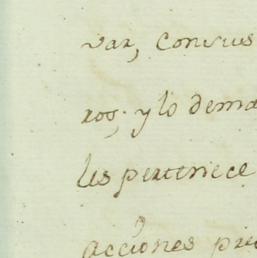 var, Con sus
ros; y lo dema
les pertenece
acciones pre